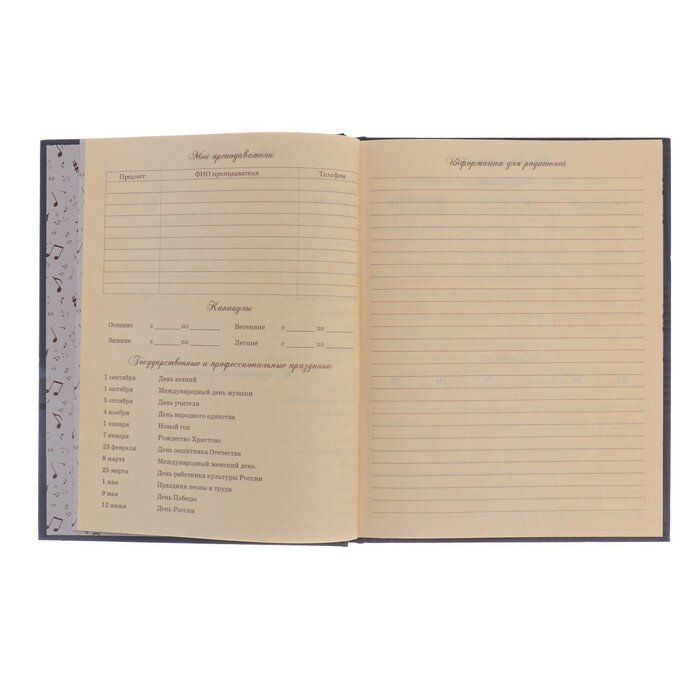 Мои преподаватели
Предмет ФИО преподавателя Телефон
Каникулы
Осенние с ______ по ______ Весенние с ______ по ______
Зимние с ______ по ______ Летние с ______ по ______
Государственные и профессиональные праздники
1 сентября День знаний
1 октября Международный день музыки
5 октября День учителя
4 ноября День народного единства
1 января Новый год
7 января Рождество Христово
23 февраля День защитника Отечества
8 марта Международный женский день
25 марта День работника культуры России
1 мая Праздник весны и труда
9 мая День Победы
12 июня День России
Информация для родителей